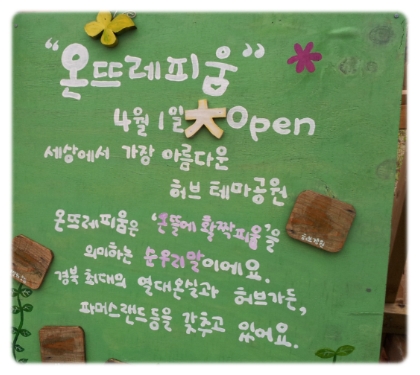 “온뜨레피움”
4월 1일 Open
세상에서 가장 아름다운
허브 테마공원
온뜨레피움은 '온뜰에 활짝피움'을
의미하는 순우리말이에요.
경북 최대의 열대온실과 허브가든,
파머스랜드등을 갖추고 있어요.